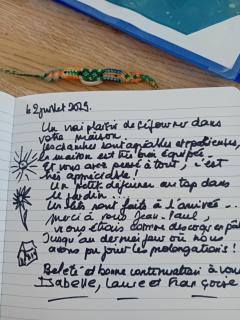 le 2 juillet 2023.
Un vrai plaisir de séjourner dans
votre maison.
les chambres sont agréables et
la maison est très bien équipée.
Et vous avez pensé à tout, c'est
très appréciable!
Un petit déjeuner au top dans
le jardin...
Les lits sont faits à l'arrivée...
merci à vous Jean-Paul,
vous étiez comme
Jusqu'au dernier jour où nous
avons pu jouer les prolongations!
et bonne continuation à vous
Isabelle, Laure et Françoise